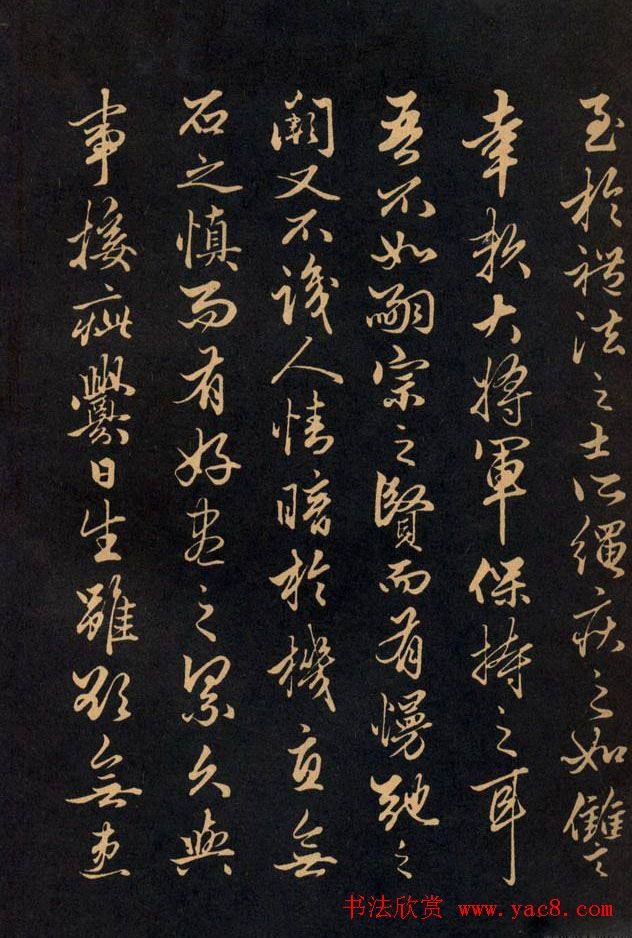 至於禮法之士所繩疾之如讎之
幸賴大將軍保持之耳
吾不如嗣宗之賢而有慢弛之
闕又不識人情暗於機宜無
石之慎而有好盡之累久與
事接疵釁日生雖欲無患
书法欣赏 www.yac8.com